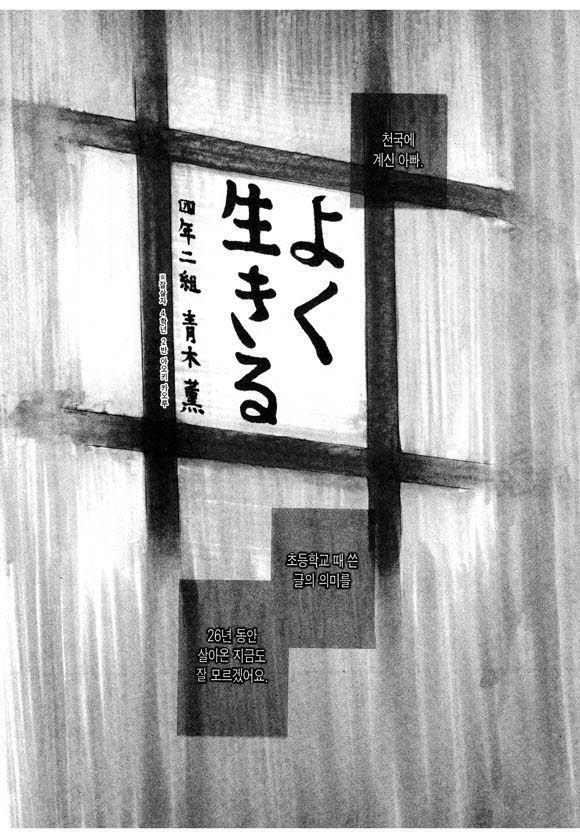 천국에
계신 아빠.
よく
生きる
四年二組 青木 薫
※잘살자 4학년 2반 아오키 카오루
초등학교 때 쓴
글의 의미를
26년 동안
살아온 지금도
잘 모르겠어요.